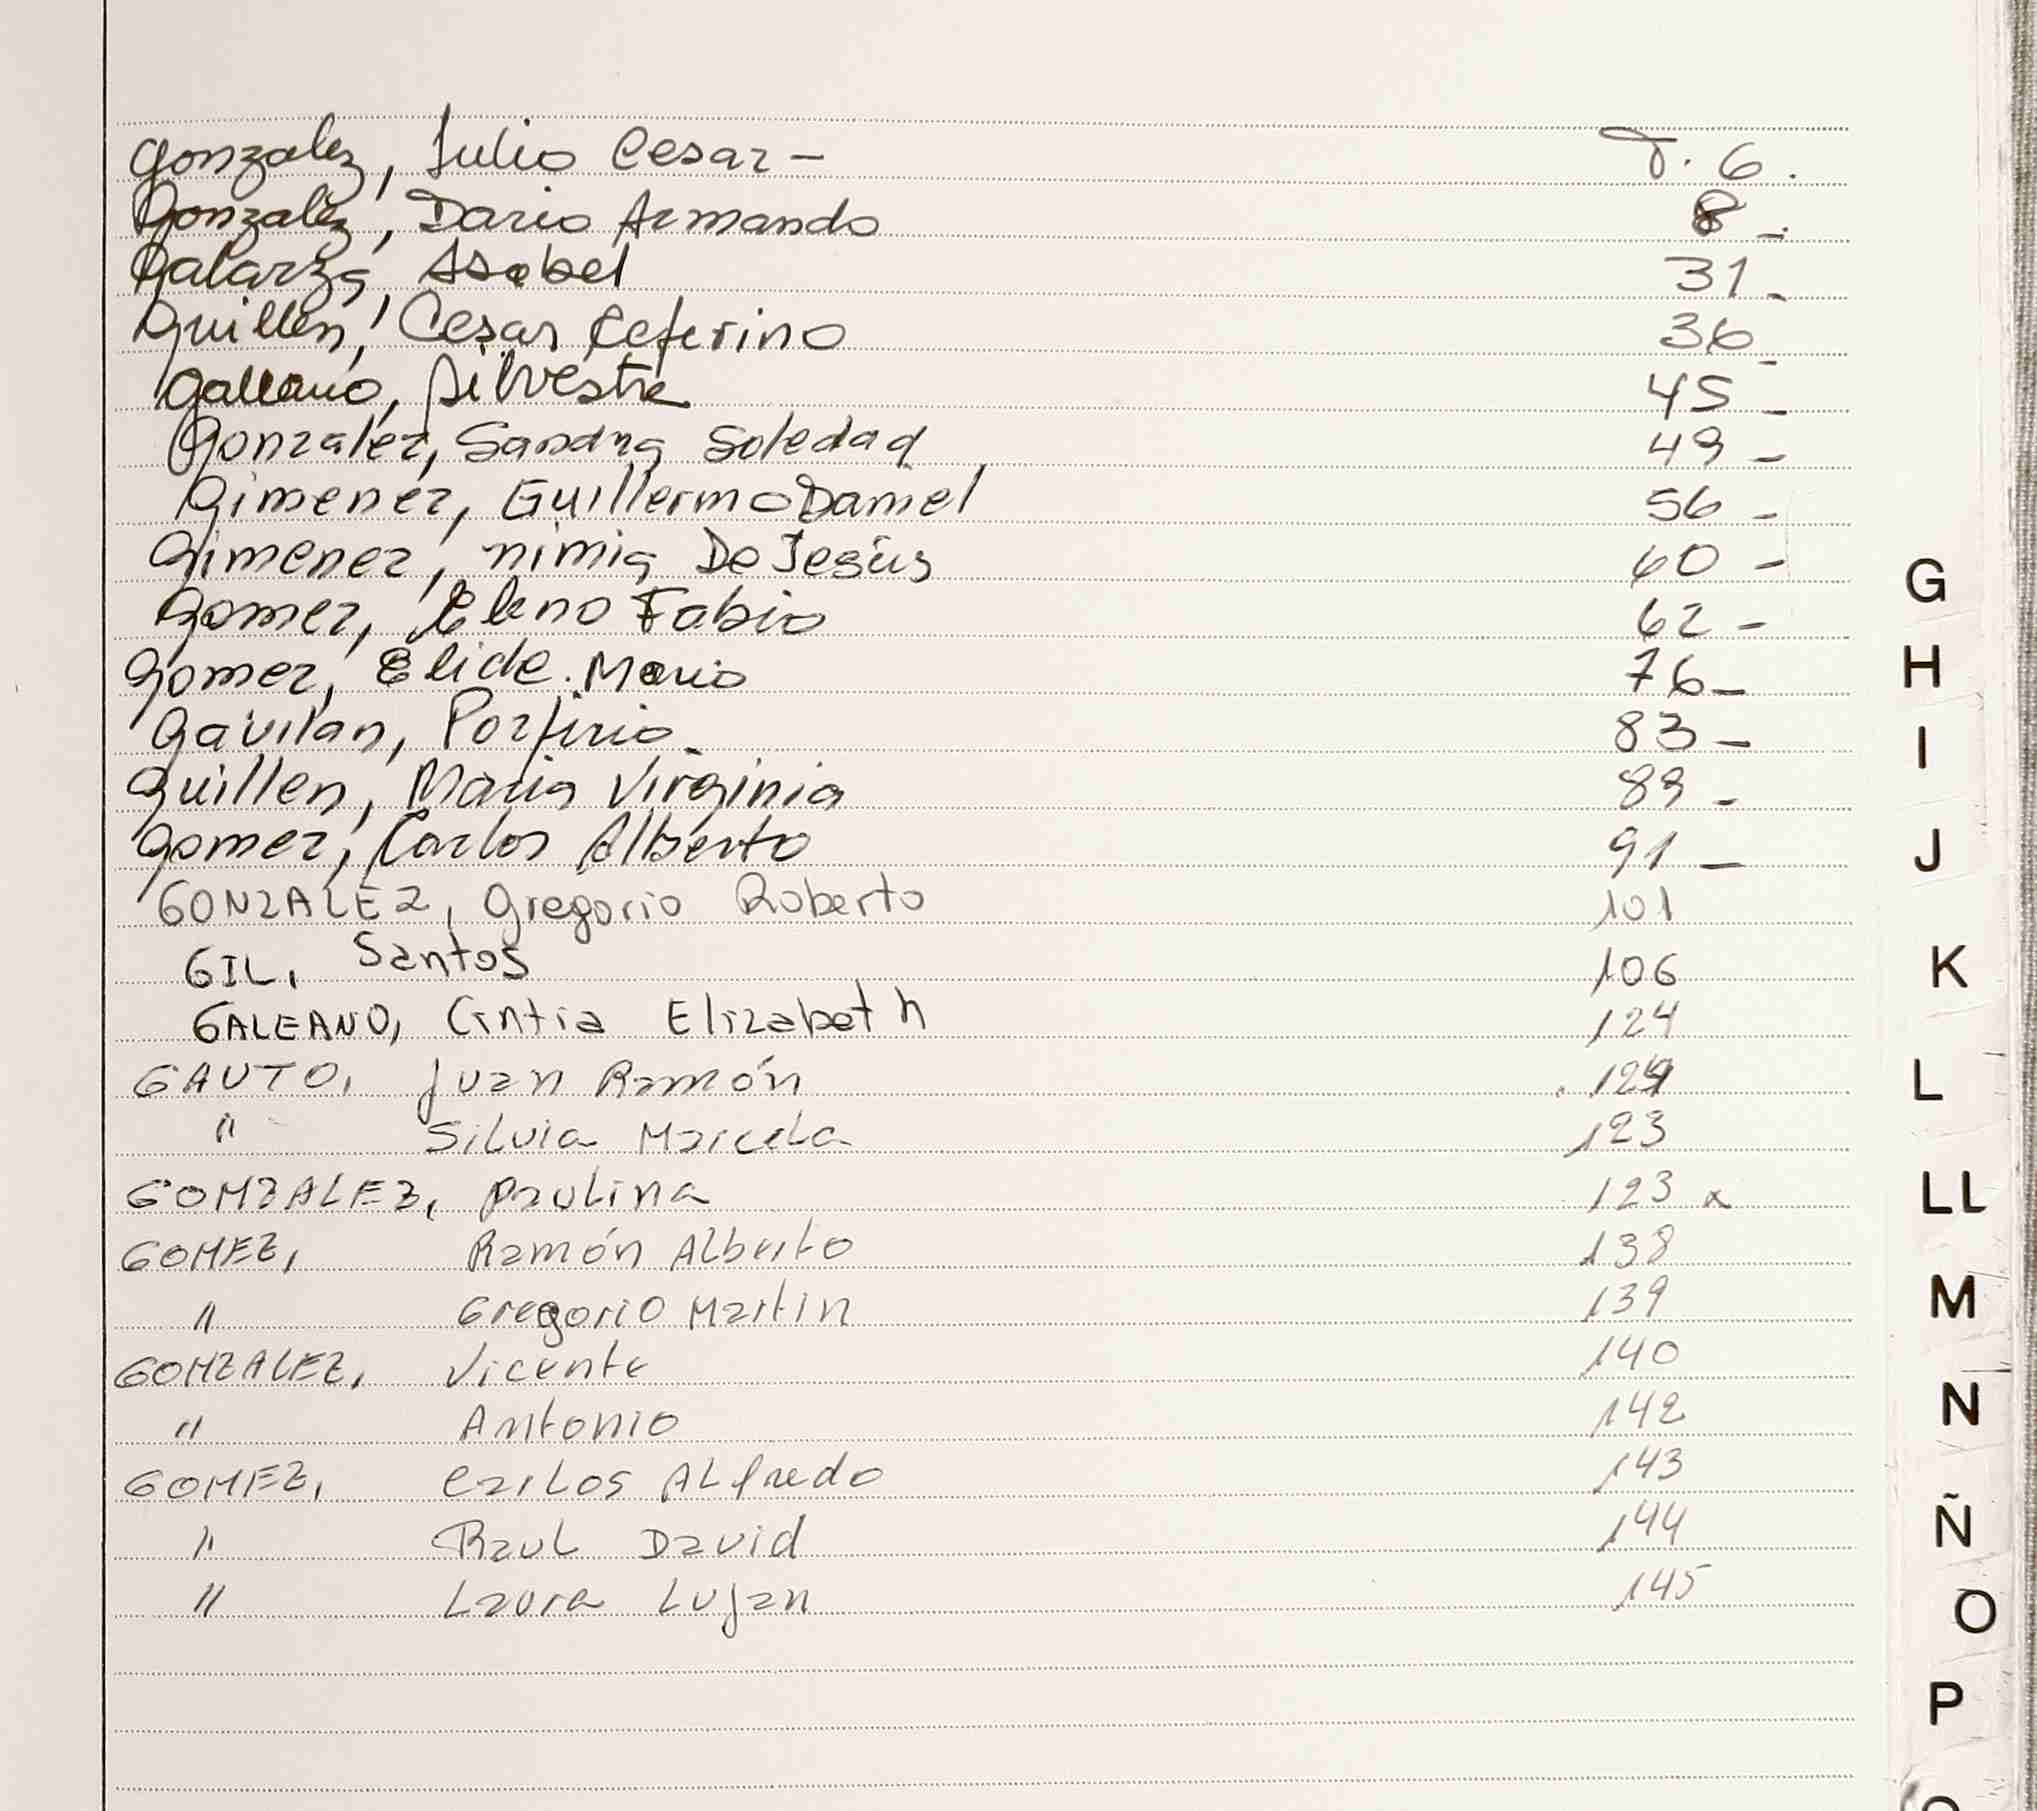 Gonzalez, Julio Cesar - F. 6.
Gonzalez, Dario Armando 8 -
Galarza, Isabel 31 -
Guillen, Cesar Ceferino 36 -
Galeano, Silvestre 45 -
Gonzalez, Sandra Soledad 49 -
Gimenez, Guillermo Daniel 56 -
Gimenez, nimia De Jesús 60 -
Gomez, Eleno Fabio 62 -
Gomez, Elide. Maria 76 -
Gavilan, Porfirio 83 -
Guillen, Maria Virginia 89 -
Gomez, Carlos Alberto 91 -
GONZALEZ, Gregorio Roberto 101
GIL, Santos 106
GALEANO, Cintia Elizabeth 124
GAUTO, Juan Ramón
" Silvia Marcela 123
GONZALEZ, Paulina 123 x
GOMEZ, Ramón Alberto 138
" Gregorio Martin 139
GONZALEZ, Vicente 140
" Antonio 142
GOMEZ, Carlos Alfredo 143
" Raul David 144
" Laura Lujan 145
G
H
I
J
K
L
LL
M
N
Ñ
O
P